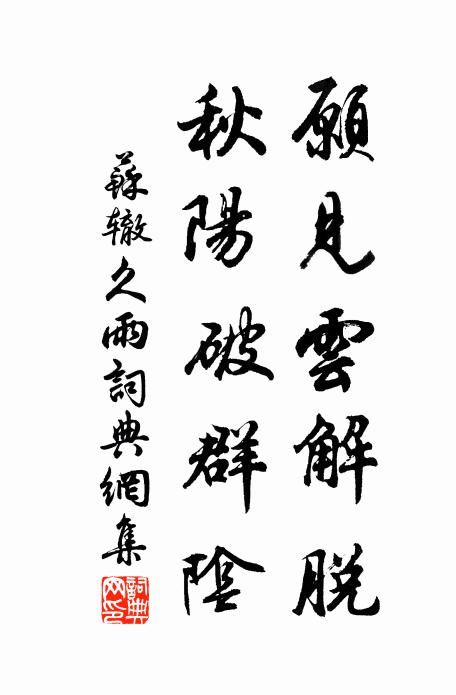 願見雲解脫
秋陽破群陰
蘇辙久雨詞典網集
詞典网印